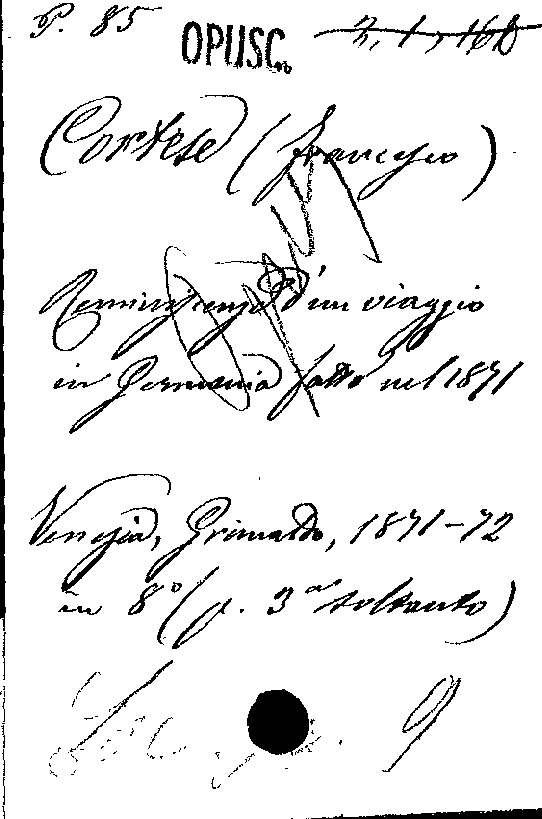 P. 85 OPUSC. 2, 1, 168
Cortese (Francesco)
Reminiscenze d'un viaggio
in Germania fatto nel 1871
Venezia, Grimaldo, 1871-72
in 8° (p. 3ª soltanto)
9